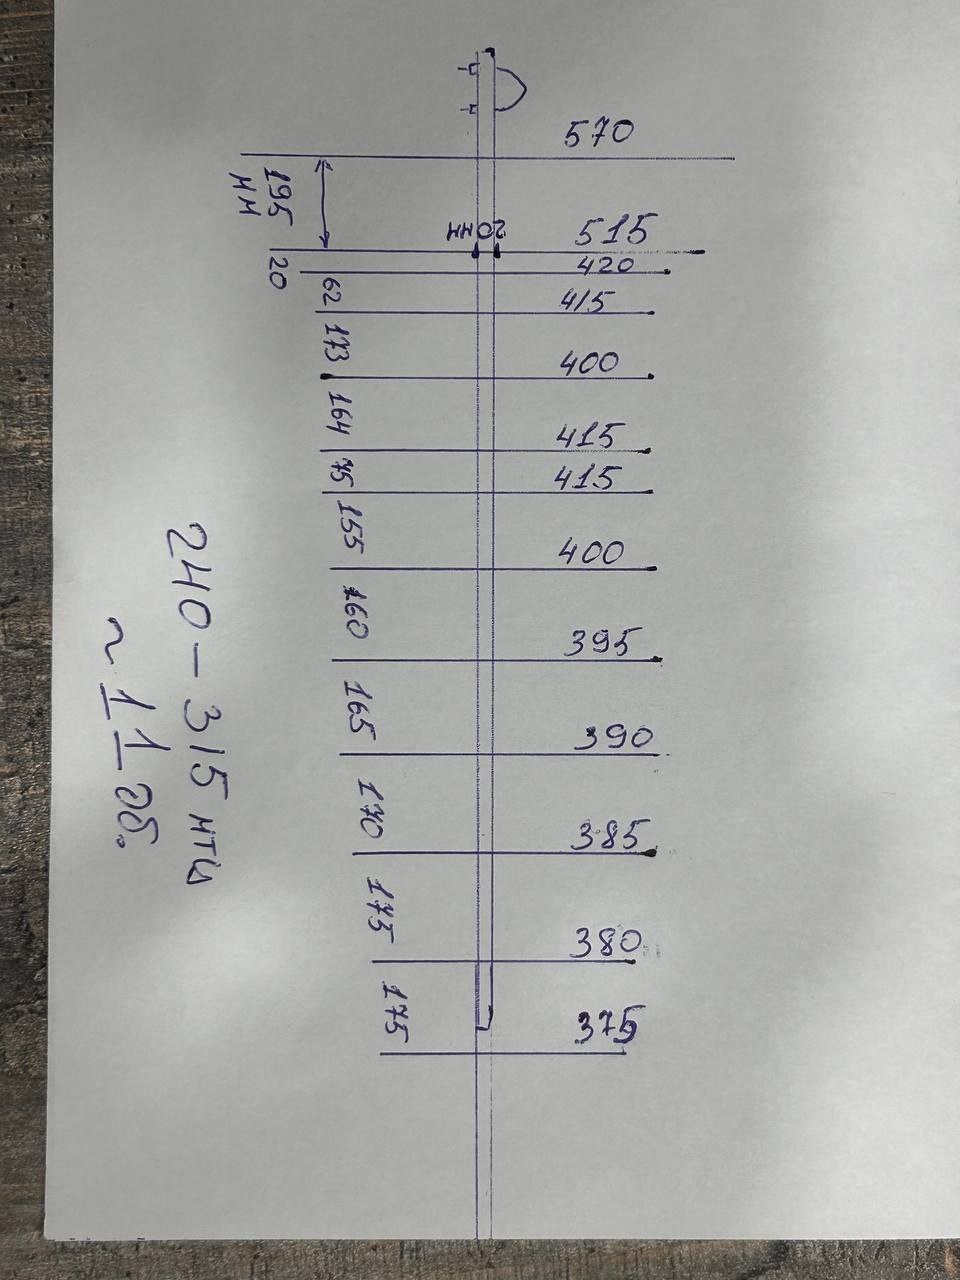 570
195
мм
20мм
515
20
420
62
415
173
400
164
415
75
415
155
400
160
395
165
390
170
385
175
380
175
375
240 – 315 мгц
~ 11 дб.